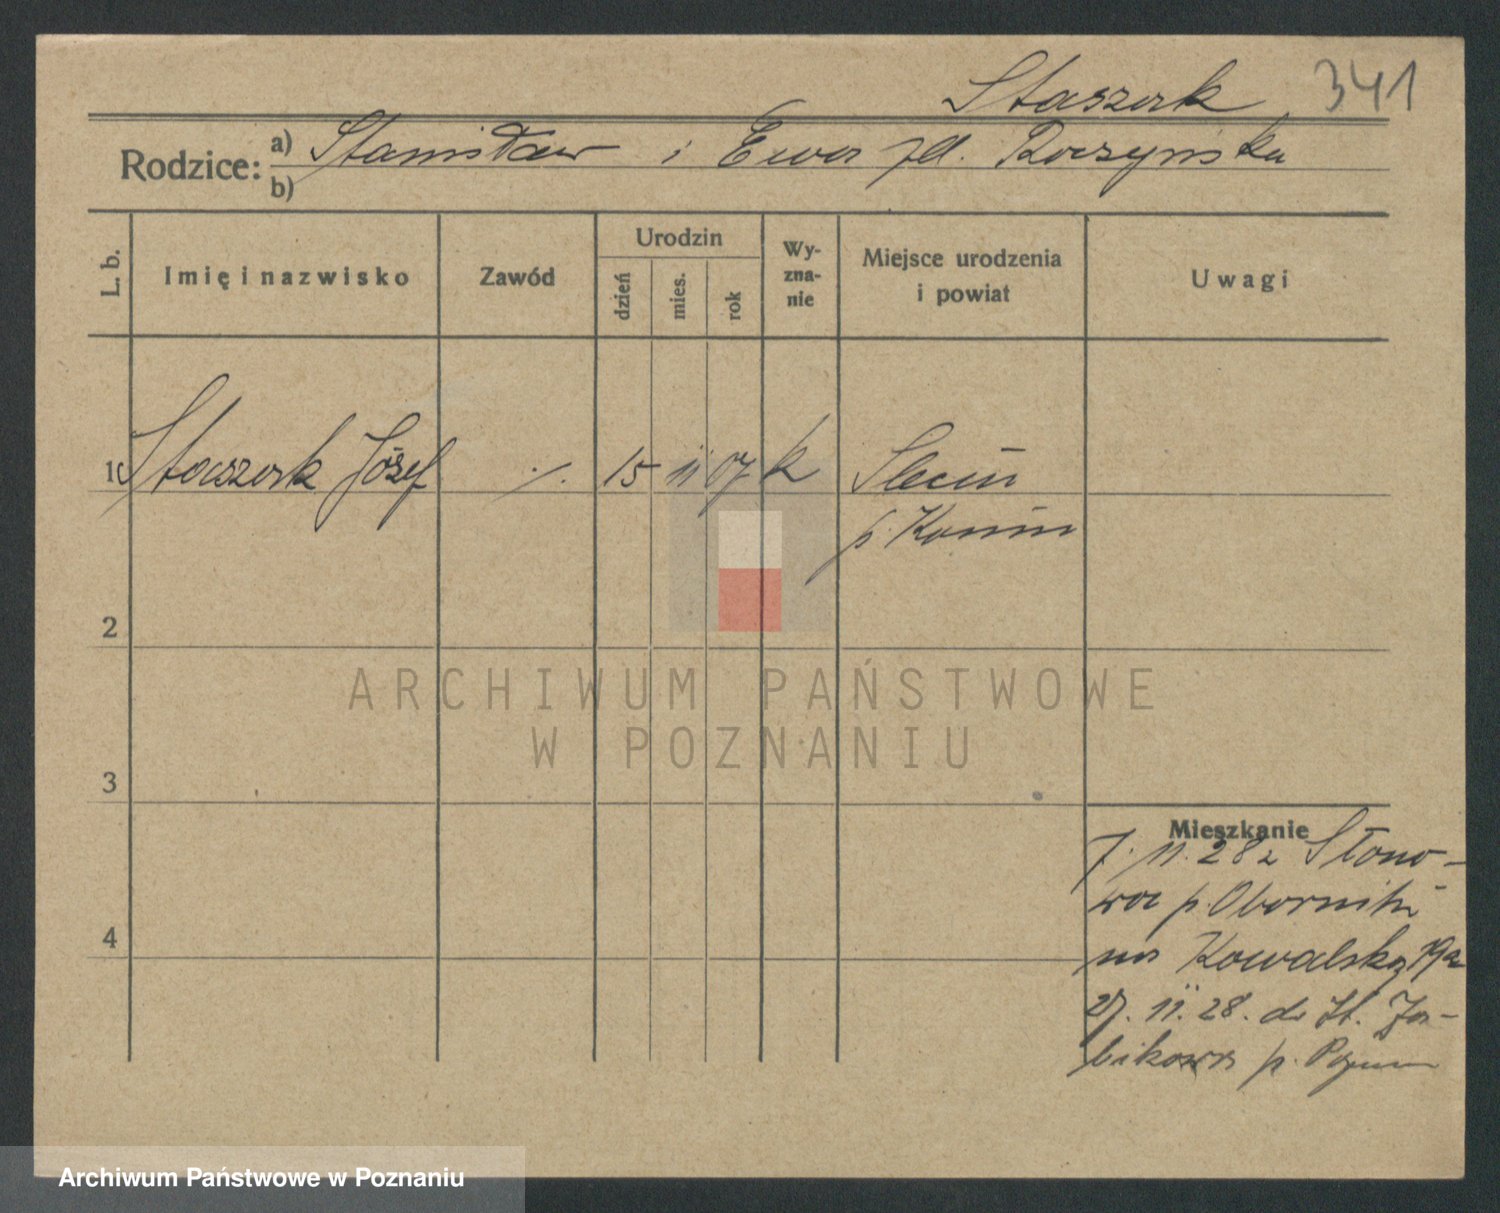 Staszak 341
Rodzice: a) Stanisław i Ewa zd. Raczyńska
b)
L. b. Imię i nazwisko Zawód Urodzin dzień mies. rok Wy-zna-nie Miejsce urodzenia i powiat Uwagi
1 Staszak Józef ./. 15 11 07 k Slesin
p. Konin
2
3
4
Mieszkanie
7. 11. 28 z Słono-
wa p. Oborniki
na Kowalska 19a
27. 11. 28. do St.
bikowa p. Poznań
ARCHIWUM PAŃSTWOWE
W POZNANIU
Archiwum Państwowe w Poznaniu